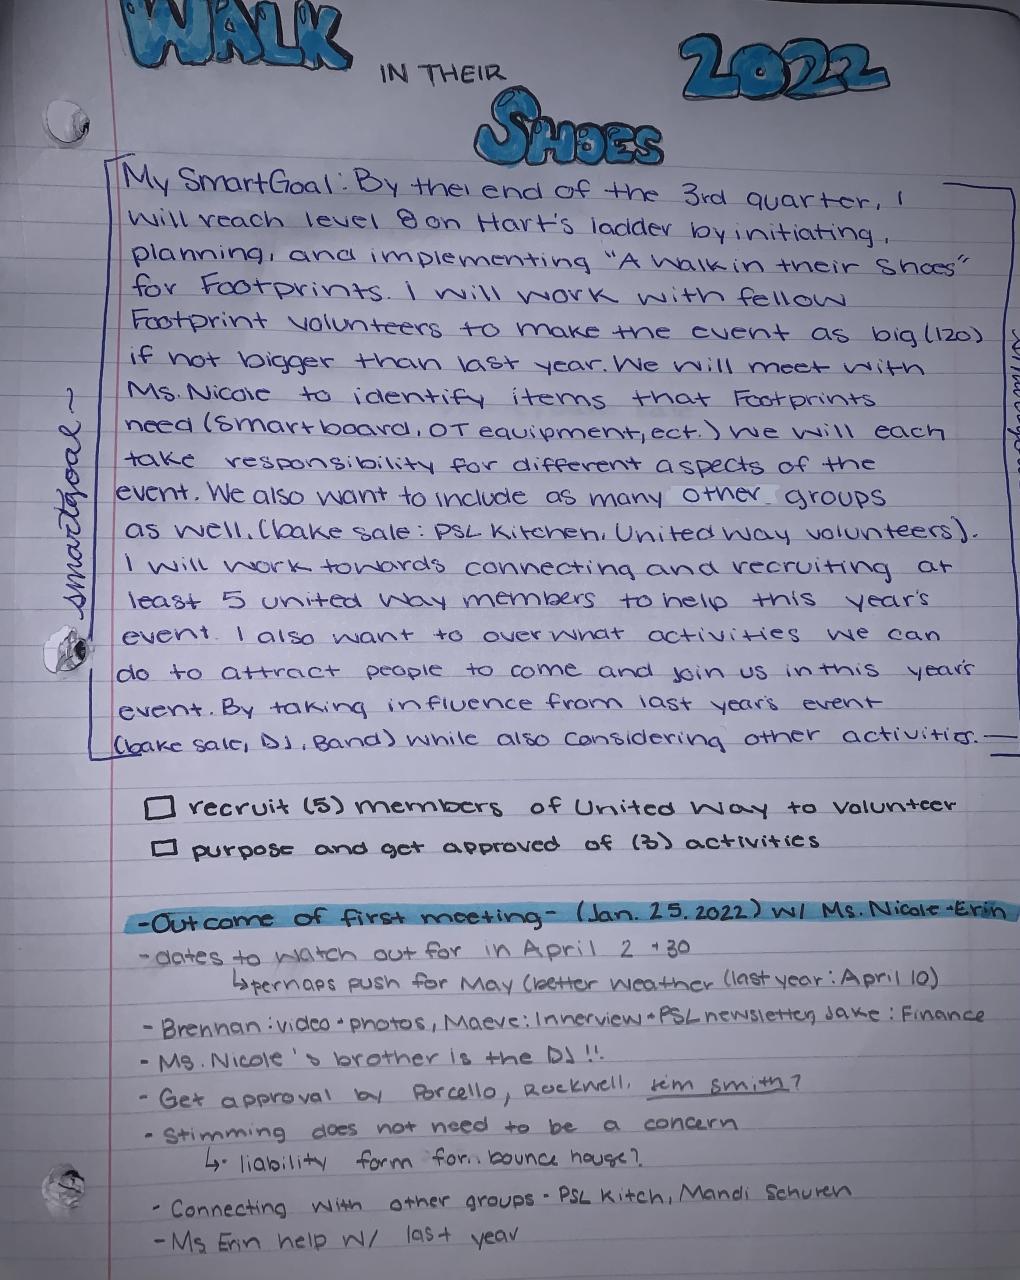 WALK IN THEIR 2022
SHOES
My SmartGoal: By the end of the 3rd quarter, I
will reach level 8 on Hart's ladder by initiating,
planning, and implementing "A walk in their shoes"
for Footprints. I will work with fellow
Footprint volunteers to make the event as big (120)
if not bigger than last year. We will meet with
Ms. Nicole to identify items that Footprints
need (smartboard, OT equipment, ect.) We will each
take responsibility for different aspects of the
event. We also want to include as many other groups
as well. (bake sale: PSL Kitchen, United Way volunteers).
I will work towards connecting and recruiting at
least 5 united way members to help this year's
event. I also want to over what activities we can
do to attract people to come and join us in this year's
event. By taking influence from last year's event
(bake sale, DJ, Band) while also considering other activities.
smartgoal~
recruit (5) members of United Way to volunteer
purpose and get approved of (3) activities
-Outcome of first meeting- (Jan. 25. 2022) w/ Ms. Nicole + Erin
-dates to watch out for in April 2 + 30
↳perhaps push for May (better weather (last year: April 10)
- Brennan: video + photos, Maeve: Innerview + PSL newsletter, Jake: Finance
- Ms. Nicole's brother is the DJ!!
- Get approval by Porcello, Rockwell, smith?
- Stimming does not need to be a concern
↳ liability form for.. bounce house?
- Connecting with other groups - PSL Kitch, Mandi Schuren
- Ms Erin help w/ last year